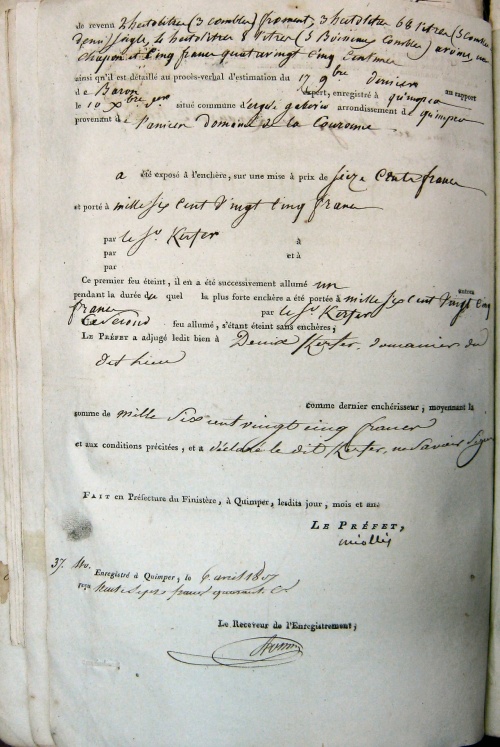 de revenu 2 hectolitres (3 combles) froment, 3 hectolitres 68 litres (5 combles
demi) seigle, 4 hectolitres 8 litres (5 Boisseaux Combles) avoine, un
chapon et cinq francs quatre vingt cinq centimes
ainsi qu'il est détaillé au procès-verbal d'estimation du 17 9bre dernier au rapport
de Baron expert, enregistré à quimper
le 10 Xbre situé commune d'ergué gaberic arrondissement de quimper
provenant de l'ancien Domaine de la Couronne
a été exposé à l'enchère, sur une mise à prix de seize Cents francs
et porté à mille six cent vingt cinq francs
par le Sr. Kerfer à
par et à
par
Ce premier feu éteint, il en a été successivement allumé un autres
pendant la durée du quel la plus forte enchère a été portée à mille six cent vingt cinq
francs par le Sr. Kerfer
Le second feu allumé, s'étant éteint sans enchères,
Le Préfet a adjugé ledit bien à Kerfer, domanier du
dit lieu
comme dernier enchérisseur, moyennant la
somme de mille six cent vingt cinq francs
et aux conditions précitées, et a déclaré le dit Kerfer, ne savoir signer
Fait en Préfecture du Finistère, à Quimper, lesdits jour, mois et an
Le Préfet,
miollis
37. Mo.
Enregistré à Quimper, le 6 avril 1807
reçu francs quarante
Le Receveur de l'Enregistrement;